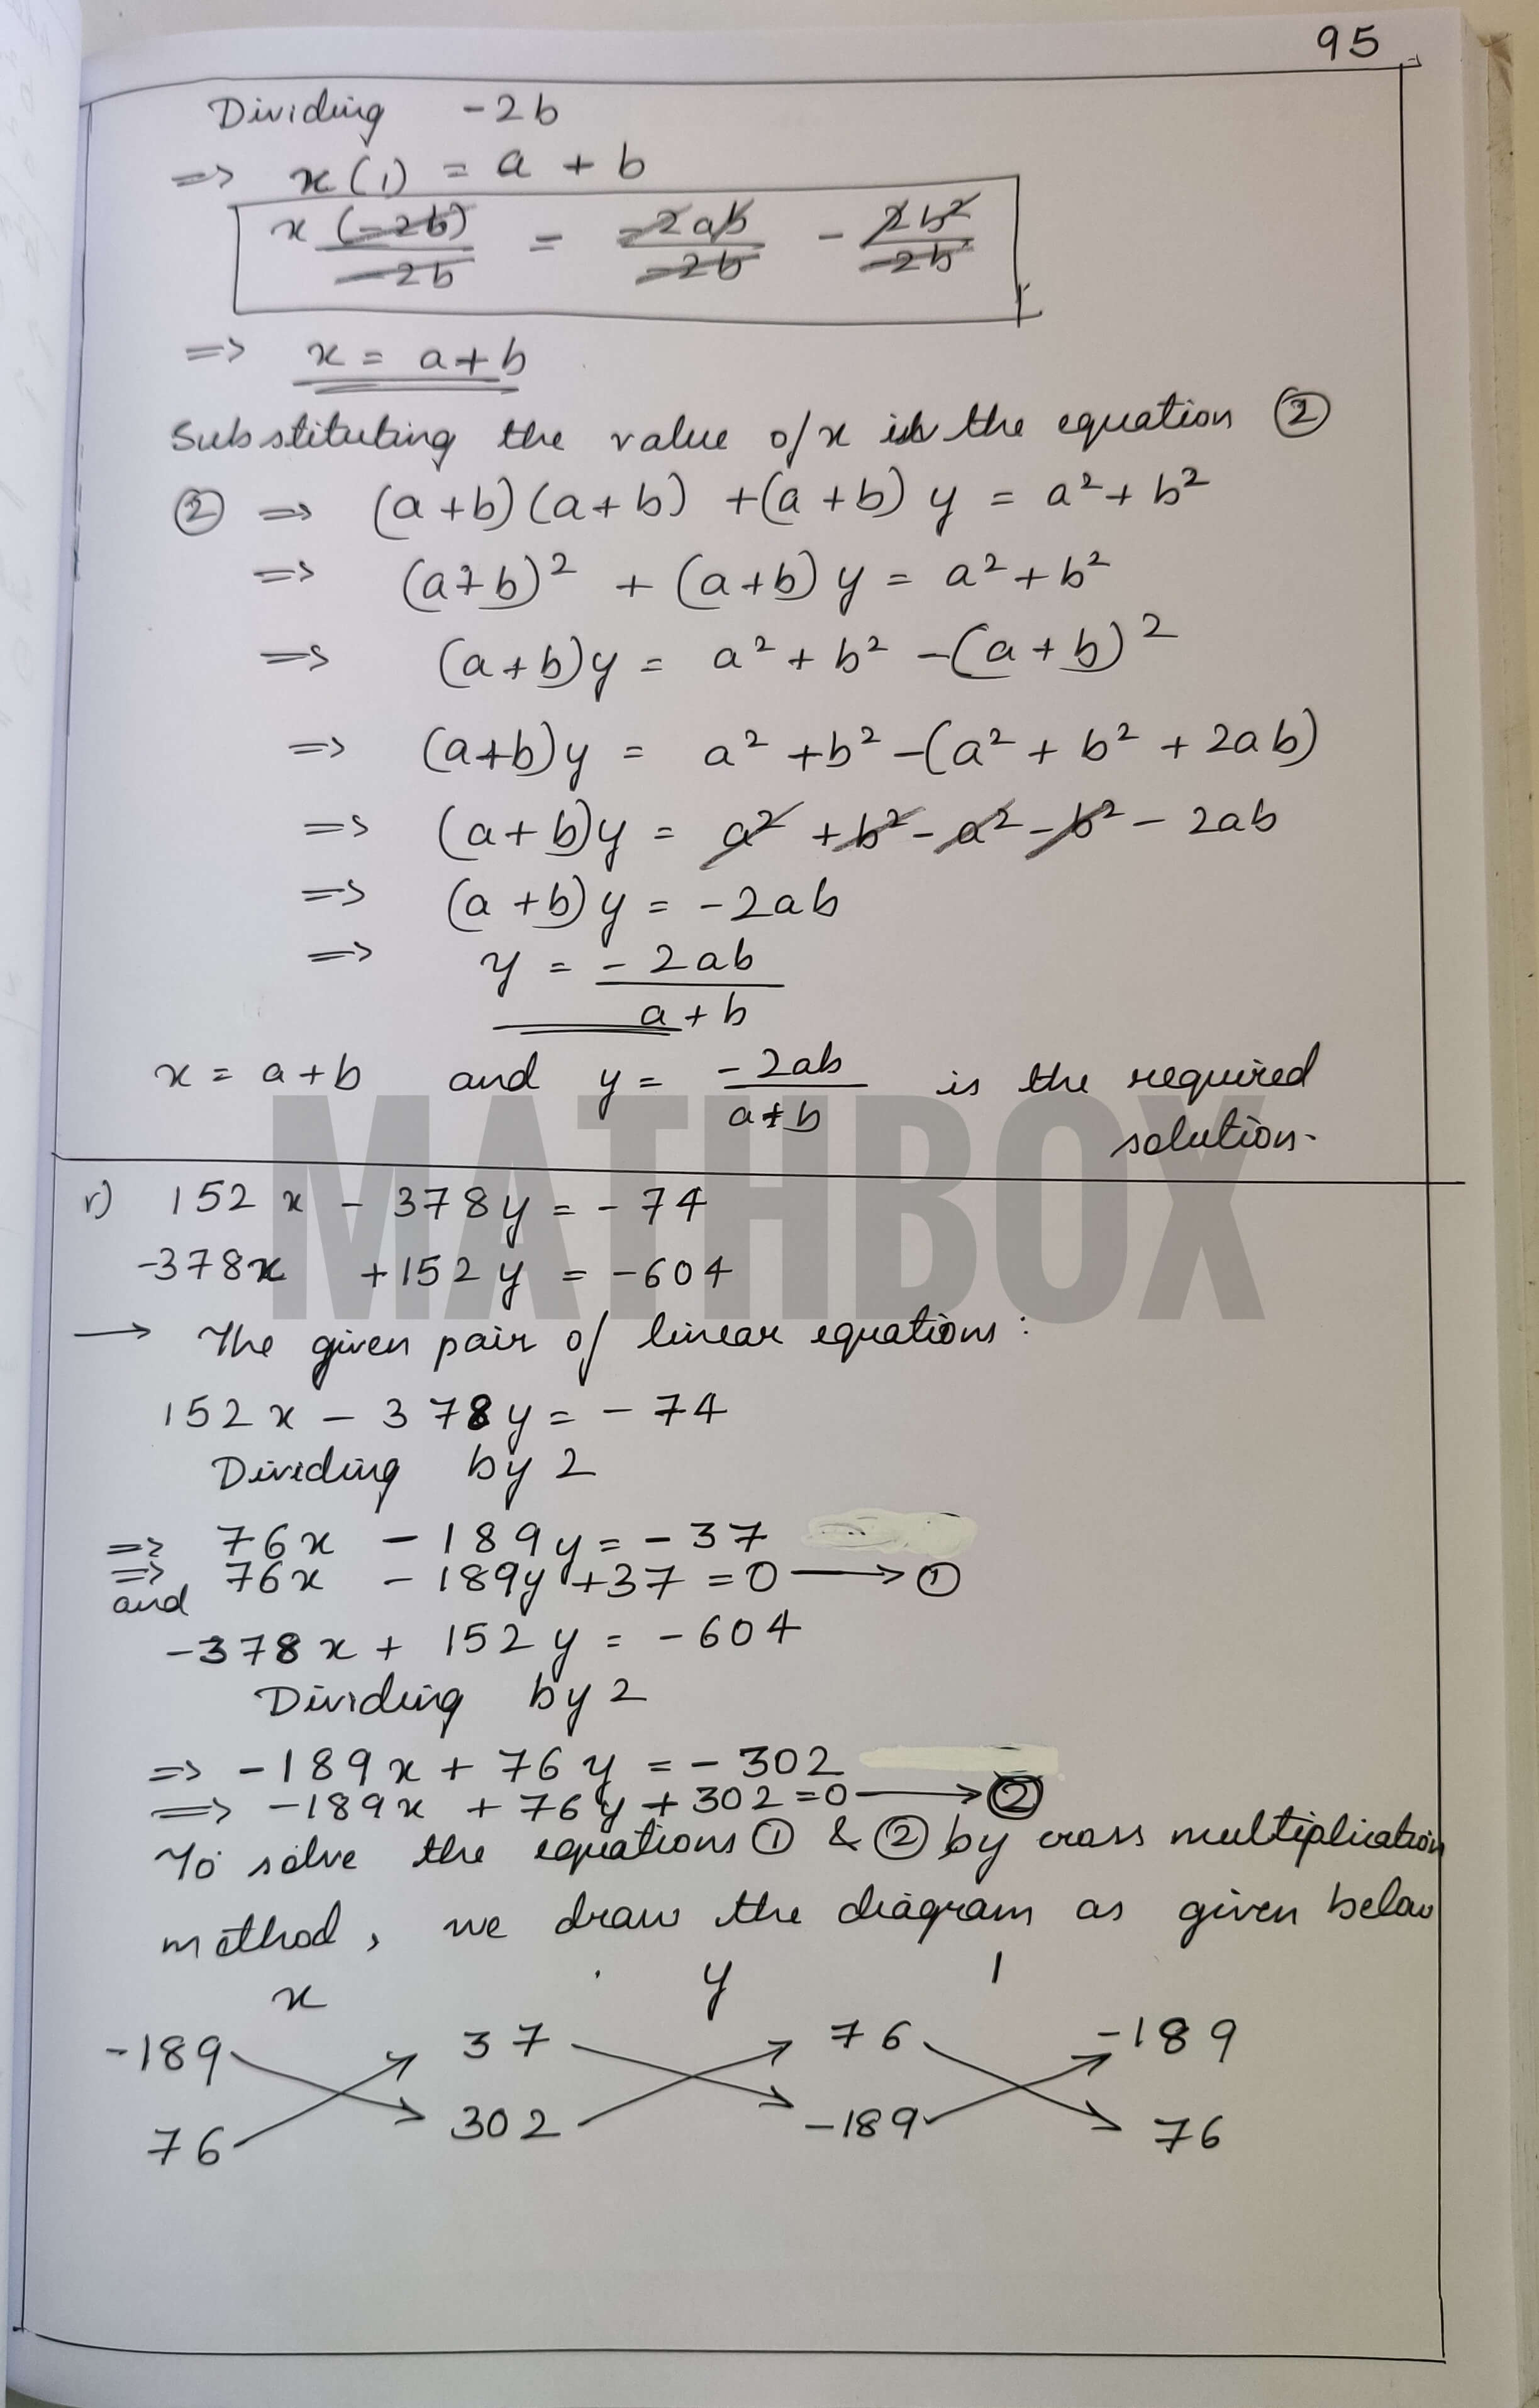 95
Dividing -2b
=> x(1) = a + b
x (-2b)/-2b = -2ab/-2b - 2b²/-2b
=> x = a+b
Substituting the value of x in the equation ②
② => (a+b)(a+b) +(a+b)y = a²+b²
=> (a+b)² + (a+b)y = a²+b²
=> (a+b)y = a²+b² -(a+b)²
=> (a+b)y = a²+b²-(a²+b²+2ab)
=> (a+b)y = a²+b²-a²-b²-2ab
=> (a+b)y = -2ab
=> y = -2ab/a+b
x = a+b and y = -2ab/a+b is the required
solution.
MATHBOX
v) 152x - 378y = -74
-378x +152y = -604
→ The given pair of linear equations:
152x - 378y = -74
Dividing by 2
=> 76x - 189y = -37
=> 76x - 189y +37 = 0 → ①
and
-378x + 152y = -604
Dividing by 2
=> -189x + 76y = -302
=> -189x + 76y + 302 = 0 → ②
To solve the equations ① & ② by cross multiplication
method, we draw the diagram as given below
x y 1
-189 37 76 -189
76 302 -189 76